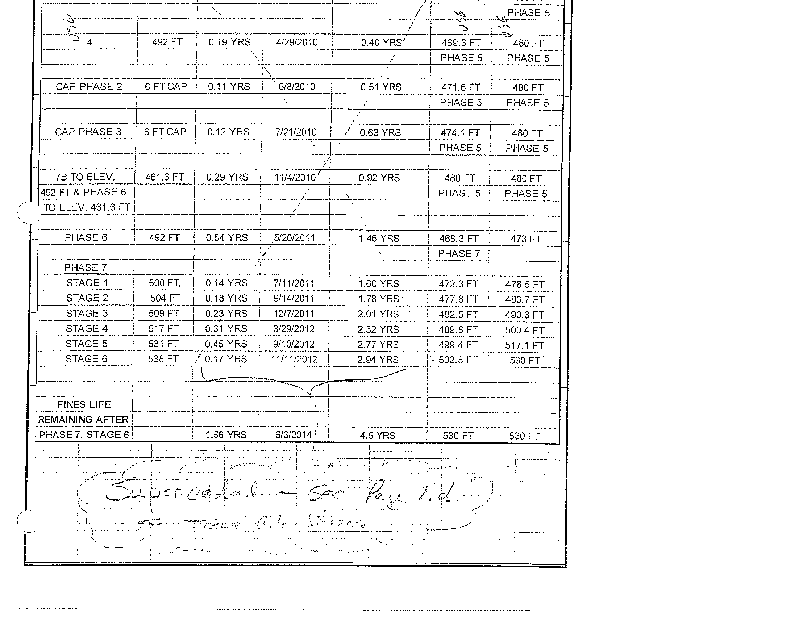 PHASE 5
4 492 FT 0.19 YRS 4/29/2010 0.40 YRS 469.3 FT 460
PHASE 5 PHASE 5
CAP PHASE 2 6 FT CAP 0.11 YRS 6/8/2010 0.51 YRS 471.6 FT 480 FT
PHASE 5 PHASE 5
CAP PHASE 3 6 FT CAP 0.12 YRS 7/21/2010 0.63 YRS 474.1 FT 480 FT
PHASE 5 PHASE 5
7B TO ELEV. 461.3 FT 0.29 YRS 11/4/2010 0.92 YRS 480 FT 480 FT
492 FT & PHASE 6 PHASE 5 PHASE 5
TO ELEV. 461.3 FT
PHASE 6 492 FT 0.54 YRS 5/20/2011 1.46 YRS 468.3 FT 473 FT
PHASE 7
PHASE 7
STAGE 1 500 FT 0.14 YRS 7/11/2011 1.60 YRS 472.3 FT 478.5 FT
STAGE 2 504 FT 0.18 YRS 9/14/2011 1.78 YRS 477.8 FT
STAGE 3 509 FT 0.23 YRS 12/7/2011 2.01 YRS 482.5 FT 490.3 FT
STAGE 4 517 FT 0.31 YRS 3/29/2012 2.32 YRS 500.4 FT
STAGE 5 531 FT 0.45 YRS 9/10/2012 2.77 YRS 498.4 FT 517.1 FT
STAGE 6 0.17 YRS 2.94 YRS 530 FT
FINES LIFE
REMAINING AFTER
PHASE 7, STAGE 6 1.56 YRS 6/3/2014 4.5 YRS 530 FT 530 FT
Superceded - See Page